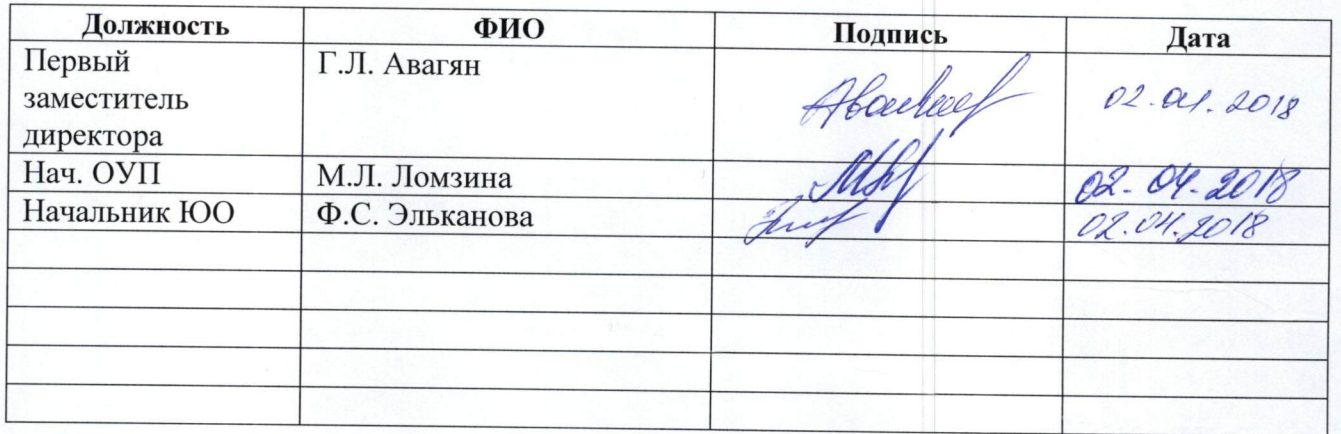 Должность ФИО Подпись Дата
Первый заместитель директора Г.Л. Авагян 02.04.2018
Нач. ОУП М.Л. Ломзина 02-04-2018
Начальник ЮО Ф.С. Эльканова 02.04.2018